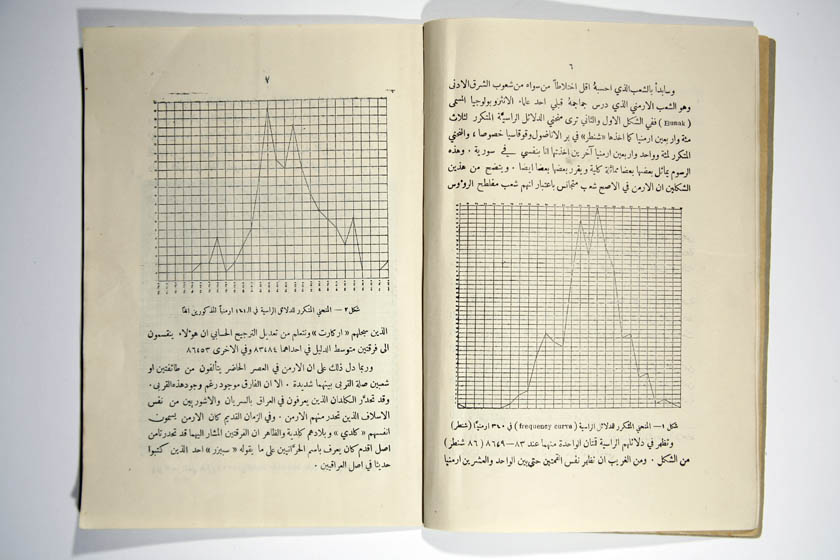 ٦
وسابدأ بالشعب الذي احسبهُ اقل اختلاطاً من سواه من شعوب الشرق الادنى
وهو الشعب الارمني الذي درس جماجمهُ قبلي احد علماء الانثروبولوجيا المسمى
(Bunak) ففي الشكل الاول والثاني ترى منحني الدلائل الراسية المتكرر لثلاث
مئة واربعين ارمنيا كما اخذها «شنطر» في بر الاناضول وقوقاسيا خصوصاً، والمنحني
المتكرر لمئة وواحد واربعين ارمنيا آخرين اخذتها انا بنفسي في سورية. وهذه
الرسوم يماثل بعضها بعضا مماثلة كلية ويقرر بعضها بعضا ايضا. ويتضح من هذين
الشكلين ان الارمن في الاصح شعب متجانس باعتبار انهم شعب مفلطح الرؤوس
شكل ١ — المنحني المتكرر للدلائل الراسية (frequency curve) في ٣٤٠ ارمنيًّا (شنطر)
وتظهر في دلائلهم الراسية قمتان الواحدة منهما عند ٨٣ — ٨٦٤٩ (٨٦ شنطر)
من الشكل. ومن الغريب ان تظهر نفس القمتين حتى بين الواحد والعشرين ارمنيا
٧
شكل ٢ — المنحني المتكرر للدلائل الراسية في الـ ١٤١ ارمنياً المذكورين انفا
الذين سجلهم «اركارت» ونتعلم من تعديل الترجيح الحسابي ان هؤلاء ينقسمون
الى فرقتين متوسط الدليل في احداهما ٨٣٤٨٤ وفي الاخرى ٨٦٤٥٣
وربما دل ذلك على ان الارمن في العصر الحاضر يتألفون من طائفتين او
شعبين صلة القربى بينهما شديدة. الا ان الفارق موجود رغم وجود هذه القربى.
وقد تحدَّر الكلدان الذين يعرفون في العراق بالسريان والاشوريين من نفس
الاسلاف الذين تحدر منهم الارمن. وفي الزمان القديم كان الارمن يسمون
انفسهم «كلدي» وبلادهم كلدية والظاهر ان الفرقتين المشار اليهما قد تحدرتا من
اصل اقدم كان يعرف باسم الحرَّانيين على ما يقوله «سبيزر» احد الذين كتبوا
حديثا في اصل العراقيين.